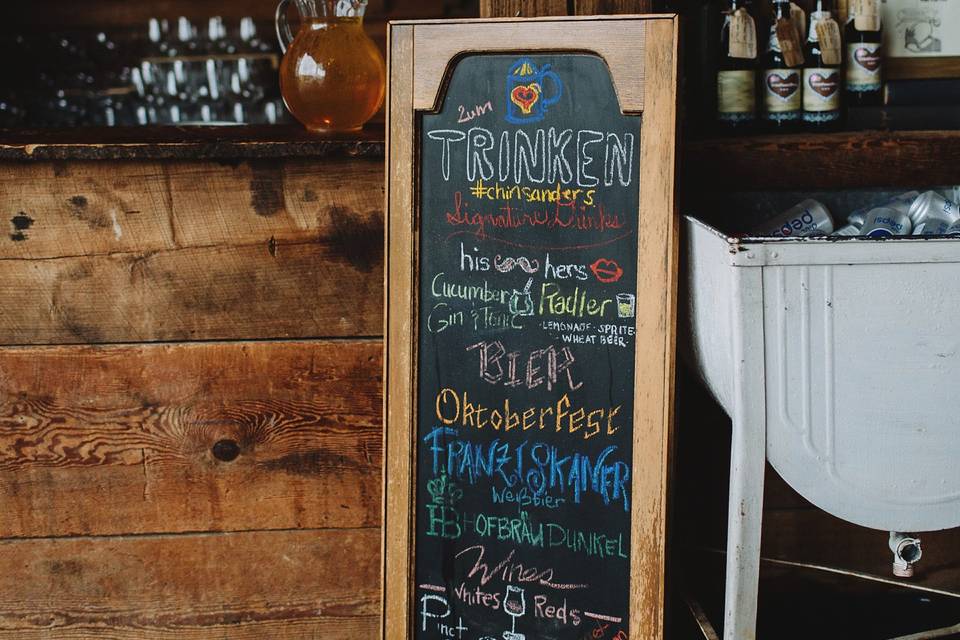 zum
TRINKEN
#chinsanders
Signature Drinks
his hers
Cucumber Radler
Gin & Tonic
LEMONADE · SPRITE ·
WHEAT BEER ·
BIER
Oktoberfest
FRANZISKANER
Weißbier
HB HOFBRÄU DUNKEL
Wines
Whites Reds